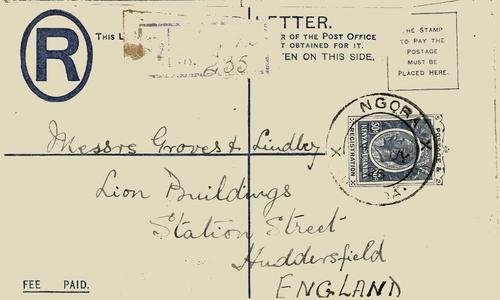 R
LETTER.
THIS L
R OF THE POST OFFICE
T OBTAINED FOR IT.
TEN ON THIS SIDE.
HE STAMP
TO PAY THE
POSTAGE
MUST BE
PLACED HERE.
No. 235
NGORA
POSTAGE &
REGISTRATION
KENYA & UGANDA
Messrs Groves & Lindley
Lion Buildings
Station Street
Huddersfield
ENGLAND
FEE PAID.